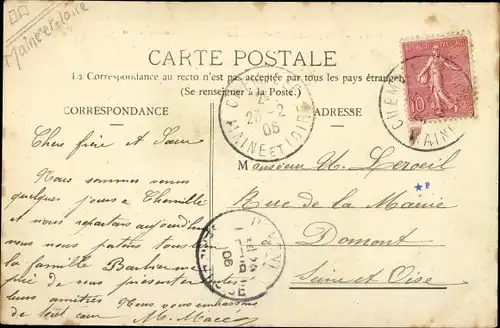 Maine-et-Loire
CARTE POSTALE
La Correspondance au recto n'est pas acceptée par tous les pays étrangers
(Se renseigner à la Poste.)
CORRESPONDANCE
ADRESSE
23-2
06
MAINE ET LOIRE
CHEM
MAINE
10
Chers frère et Sœur
Nous sommes venus
quelques jours à Chemillé
et nous repartons aujourd'hui
nous nous
la famille Barbier me
prie de vous présenter
leurs amitiés Nous vous embrassons
de tout cœur M. Macé
Monsieur
Rue de la Mairie
Domont
Seine et Oise
06